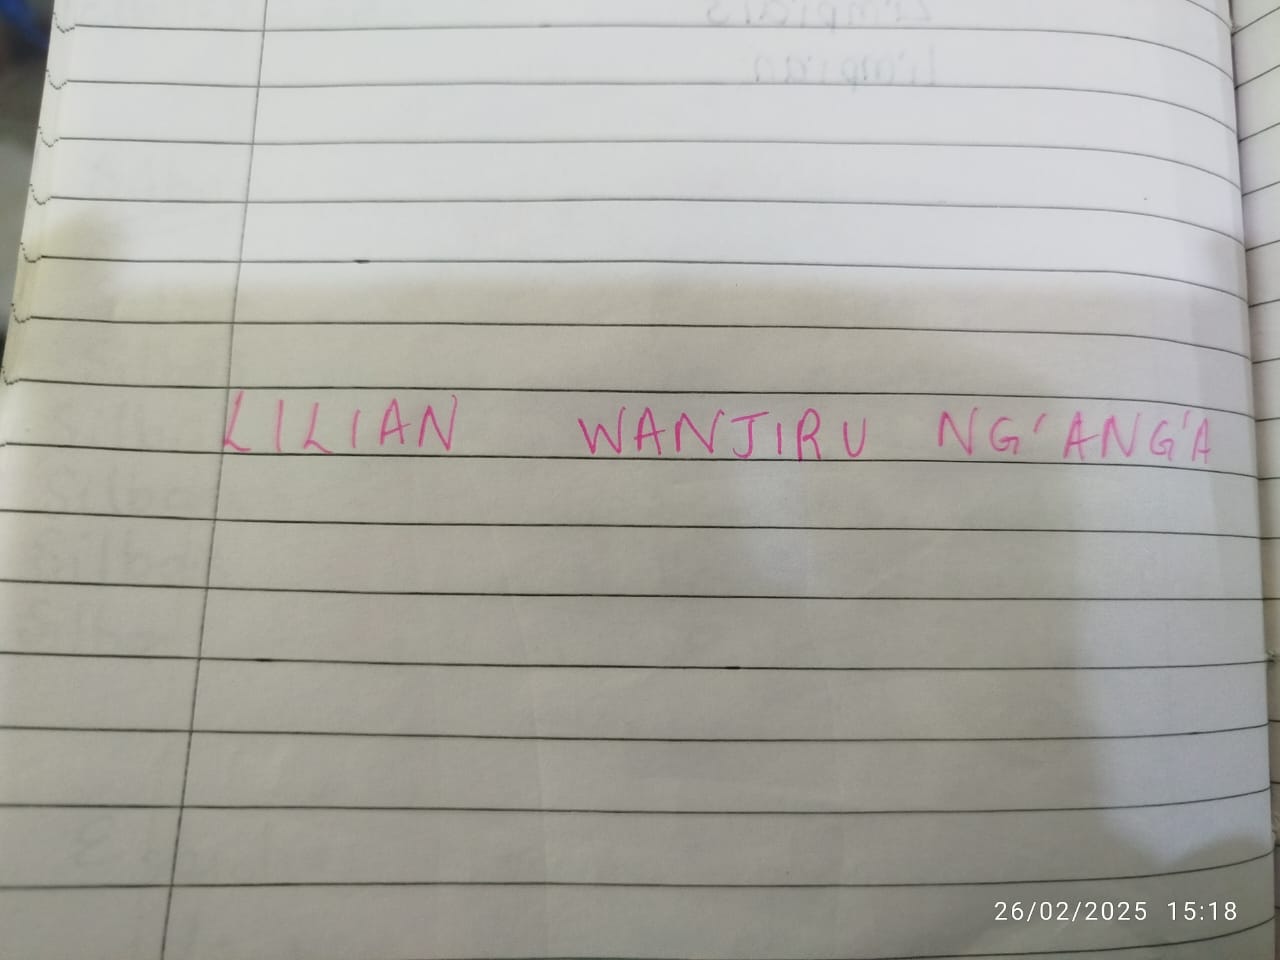 LILIAN WANJIRU NG'ANG'A
26/02/2025 15:18